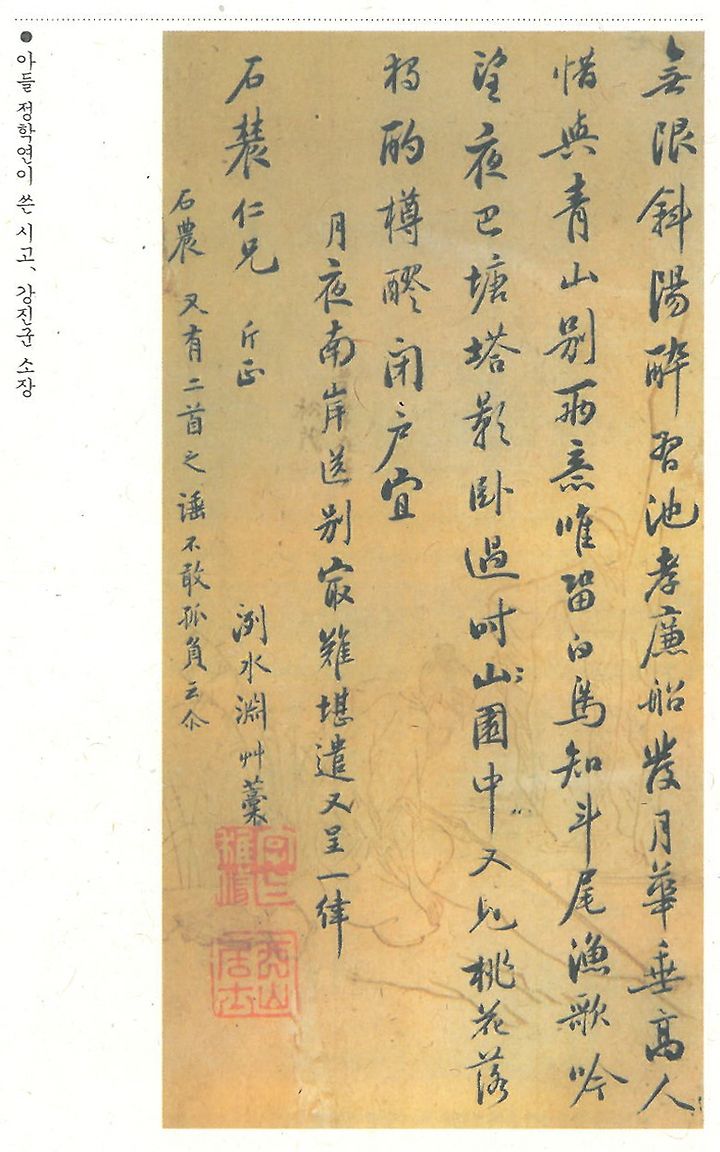 無限斜陽醉習池孝廉船發月華垂高人
惜與青山別兩意唯留白馬知斗尾漁歌吟
望夜巴塘塔影臥過時山園中又見桃花落
獨酌樽醪閉戶宜
月夜南岸送別最難堪遣又呈一律
石農仁兄 斤正 洌水淵艸藁
石農 又有二首之諈不敢孤負云尒
● 아들 정학연이 쓴 시고, 강진군 소장